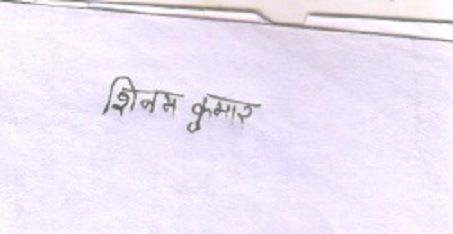 शिनम कुमार